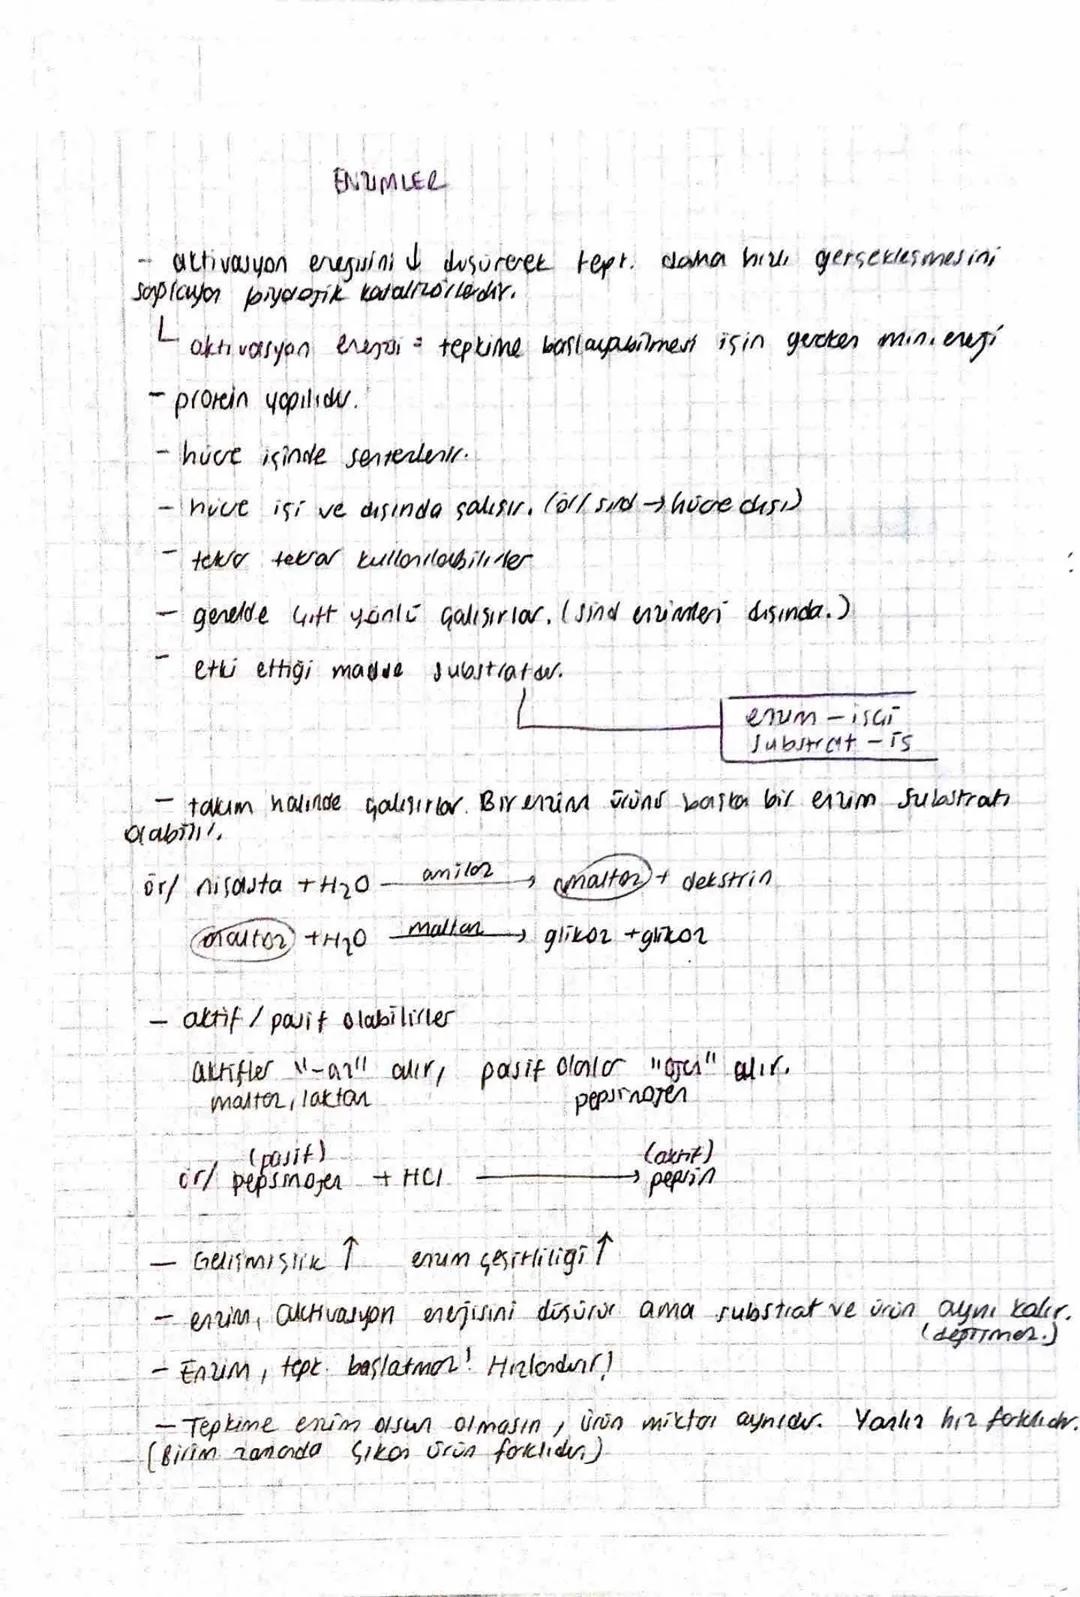 ENZİMLER
- aktivasyon enerjisini ↓ düşürerek tepk. daha hızlı gerçekleşmesini
sağlayan biyolojik katalizörlerdir.
└ aktivasyon enerjisi = tepkime başlayabilmesi için gereken min. enerji
- protein yapılıdır.
- hücre içinde sentezlenir.
- hücre içi ve dışında çalışır. (ör/ sind → hücre dışı)
- tekrar tekrar kullanılabilirler
- genelde çift yönlü çalışırlar. (sind enzimleri dışında.)
- etki ettiği madde substratdır.
enzim - işçi
substrat - iş
- takım halinde çalışırlar. Bir enzim ürünü başka bir enzim substratı
olabilir.
ör/ nişasta + H₂O amilaz → maltoz + dekstrin
maltoz + H₂O maltaz → glikoz + glikoz
- aktif / pasif olabilirler
aktifler "-az" alır, pasif olanlar "ojen" alır.
maltaz, laktaz pepsinojen
(pasif) (aktif)
ör/ pepsinojen + HCl → pepsin
- Gelişmişlik ↑ enzim çeşitliliği ↑
- enzim, aktivasyon enerjisini düşürür ama substrat ve ürün aynı kalır.
(değişmez.)
- Enzim, tepk. başlatmaz! Hızlandırır!
- Tepkime enzim olsun olmasın, ürün miktarı aynıdır. Yanlız hız farklıdır.
(Birim zamanda çıkan ürün farklıdır.)